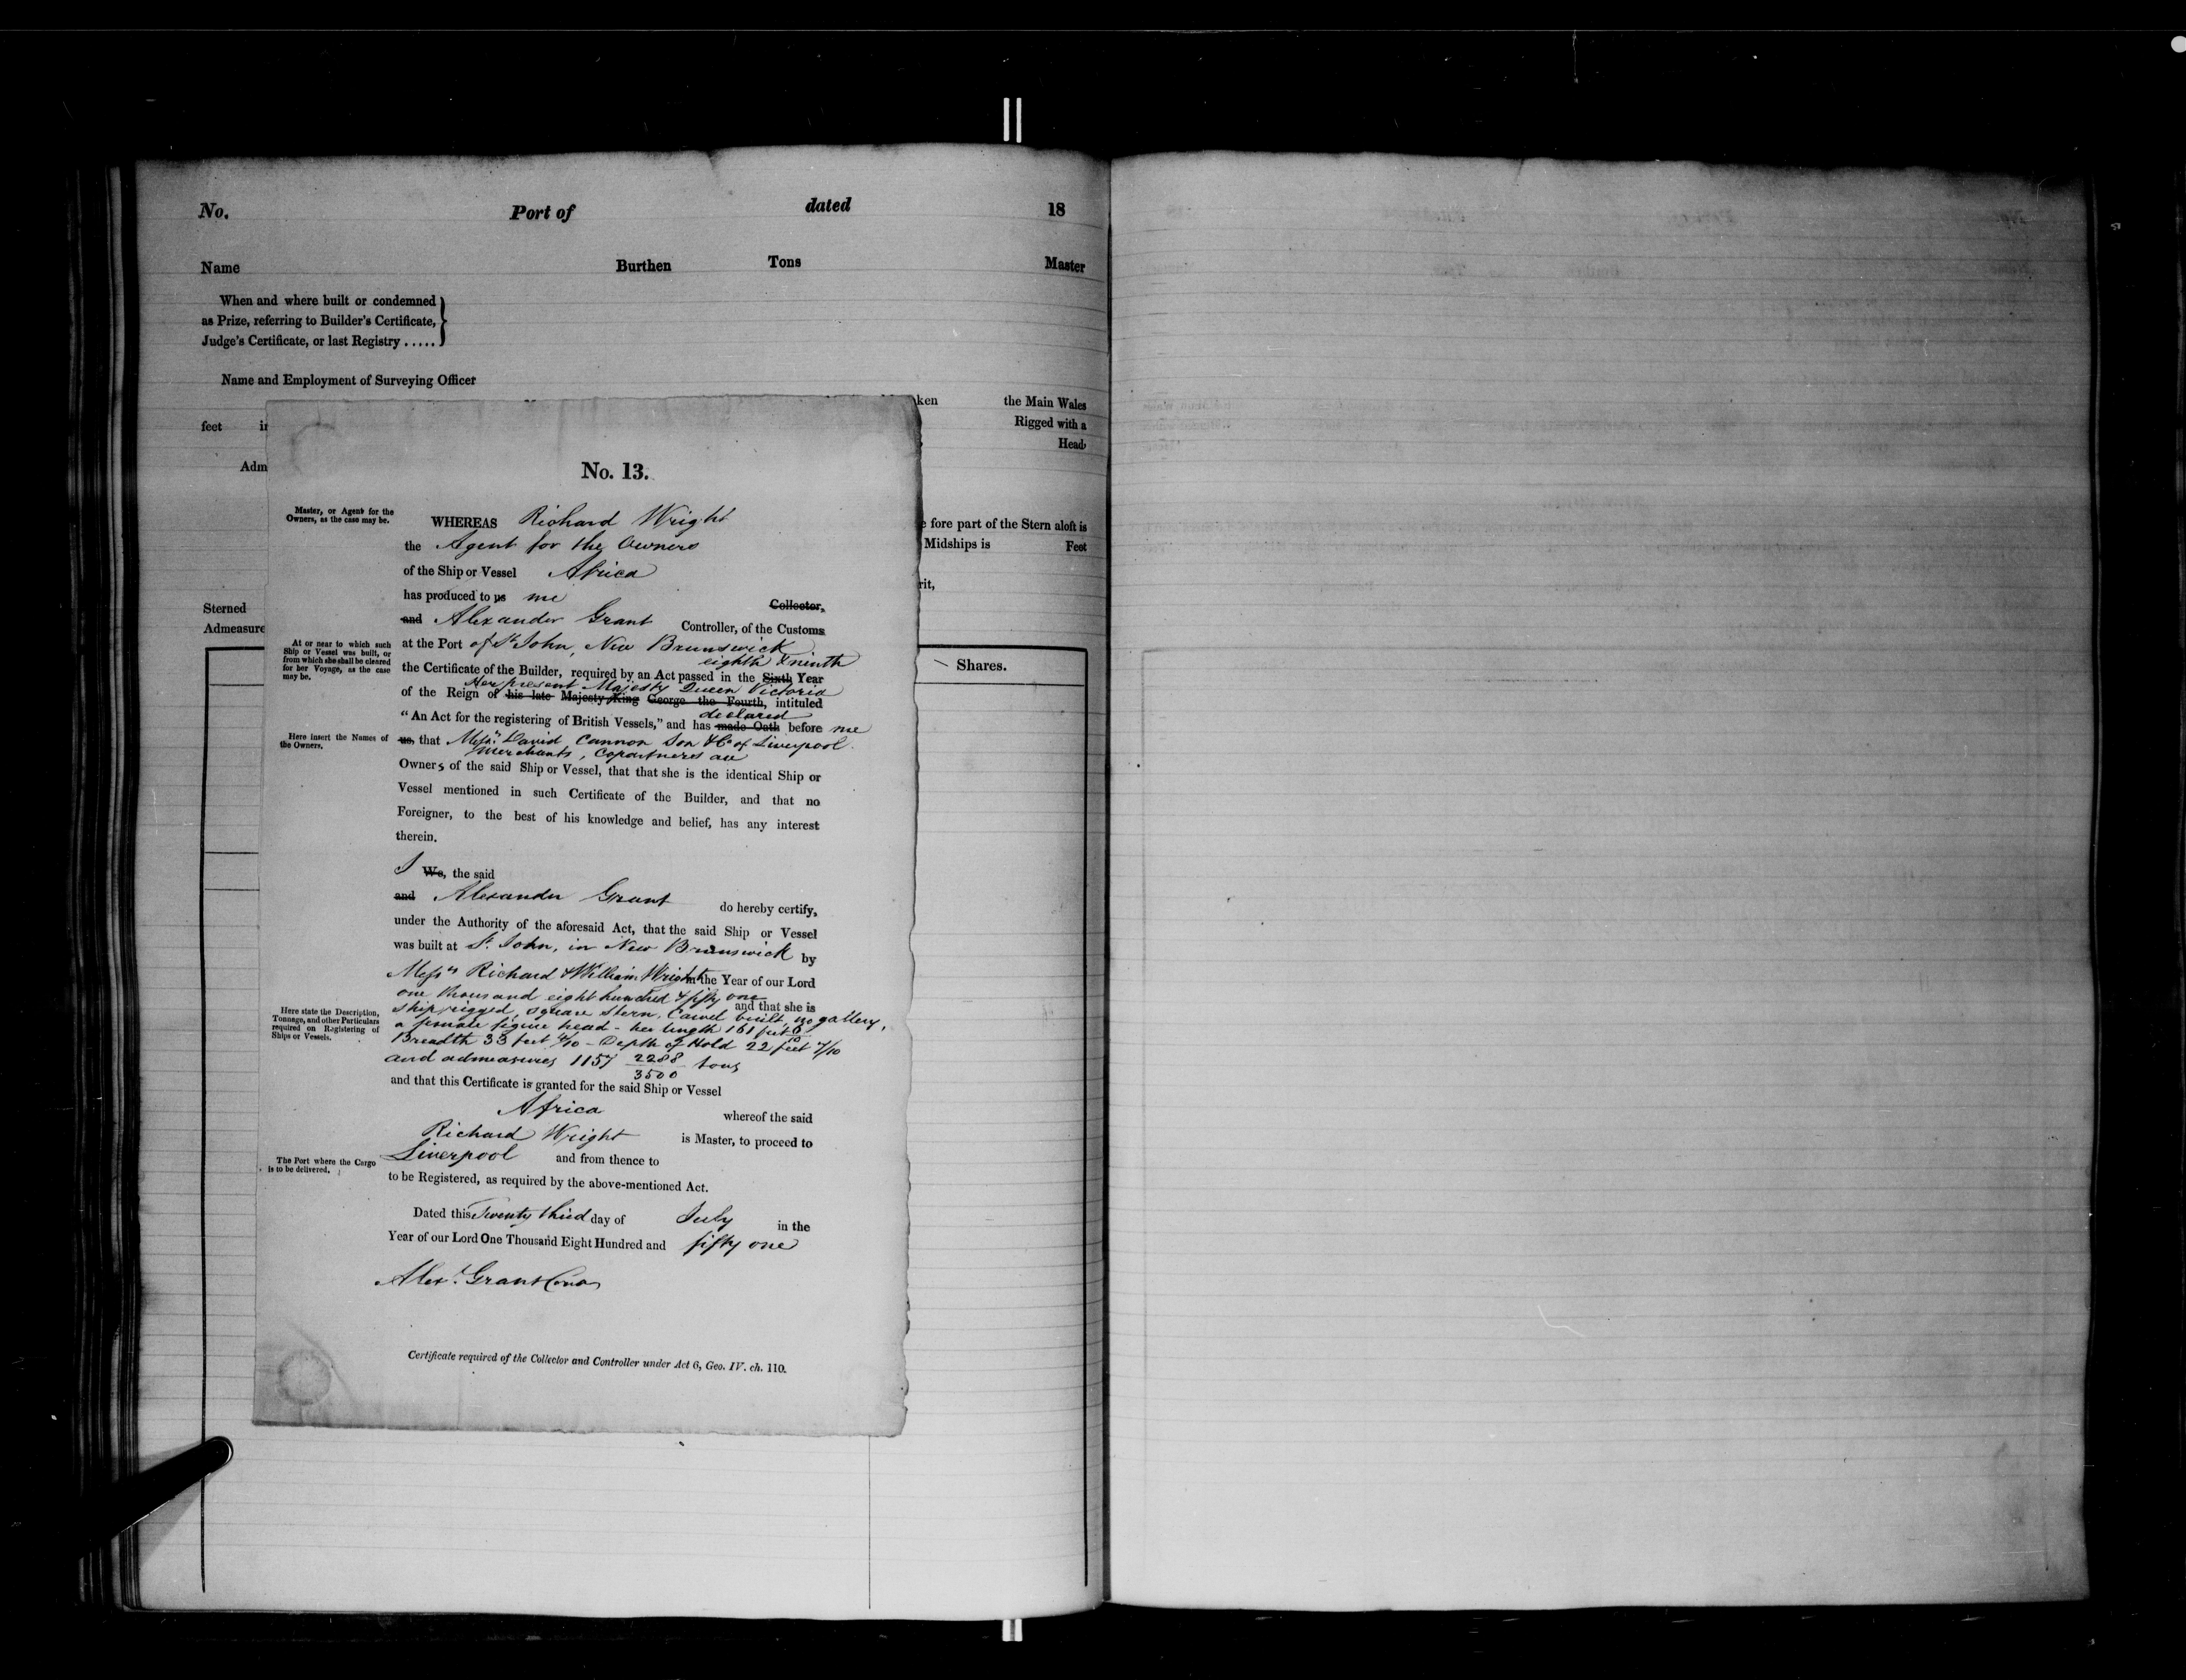 No. Port of dated 18
Name Burthen Tons Master
When and where built or condemned
as Prize, referring to Builder's Certificate,
Judge's Certificate, or last Registry .....
Name and Employment of Surveying Officer
ken the Main Wales
feet in Rigged with a
Head
Adm
fore part of the Stern aloft is
Midships is Feet
rit,
Sterned
Admeasure
Shares.
No. 13.
Master, or Agent for the
Owners, as the case may be.
WHEREAS Richard Wright
the Agent for the Owners
of the Ship or Vessel Africa
has produced to us me
Collector,
and Alexander Grant Controller, of the Customs
At or near to which such
Ship or Vessel was built, or
from which she shall be cleared
for her Voyage, as the case
may be.
at the Port of St John, New Brunswick
eighth & ninth
the Certificate of the Builder, required by an Act passed in the Sixth Year
Her present Majesty Queen Victoria
of the Reign of his late Majesty King George the Fourth, intituled
declared
"An Act for the registering of British Vessels," and has made Oath before me
Here insert the Names of
the Owners.
us, that Messrs. David Cannon Son & Co of Liverpool.
Merchants, Copartners are
Owners of the said Ship or Vessel, that that she is the identical Ship or
Vessel mentioned in such Certificate of the Builder, and that no
Foreigner, to the best of his knowledge and belief, has any interest
therein.
I We, the said
and Alexander Grant do hereby certify,
under the Authority of the aforesaid Act, that the said Ship or Vessel
was built at St. John, in New Brunswick by
Messrs Richard & William Wright in the Year of our Lord
one thousand eight hundred & fifty one and that she is
Here state the Description,
Tonnage, and other Particulars
required on Registering of
Ships or Vessels.
ship rigged, square stern, Carvel built, no gallery,
a female figure head - her length 161 feet 8/10
Breadth 33 feet 4/10 - Depth of Hold 22 feet 7/10
and admeasures 1157 2288/3500 tons
and that this Certificate is granted for the said Ship or Vessel
Africa whereof the said
Richard Wright is Master, to proceed to
The Port where the Cargo
is to be delivered.
Liverpool and from thence to
to be Registered, as required by the above-mentioned Act.
Dated this Twenty third day of July in the
Year of our Lord One Thousand Eight Hundred and fifty one
Alexr. Grant
Certificate required of the Collector and Controller under Act 6, Geo. IV. ch. 110.